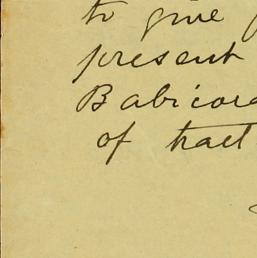 to give
present
Babicora
of tract